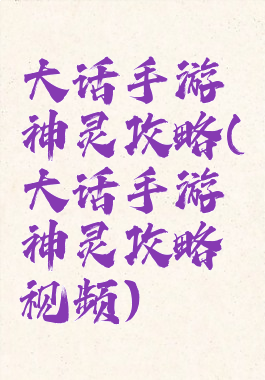 大话手游
神灵攻略(
大话手游
神灵攻略
视频)